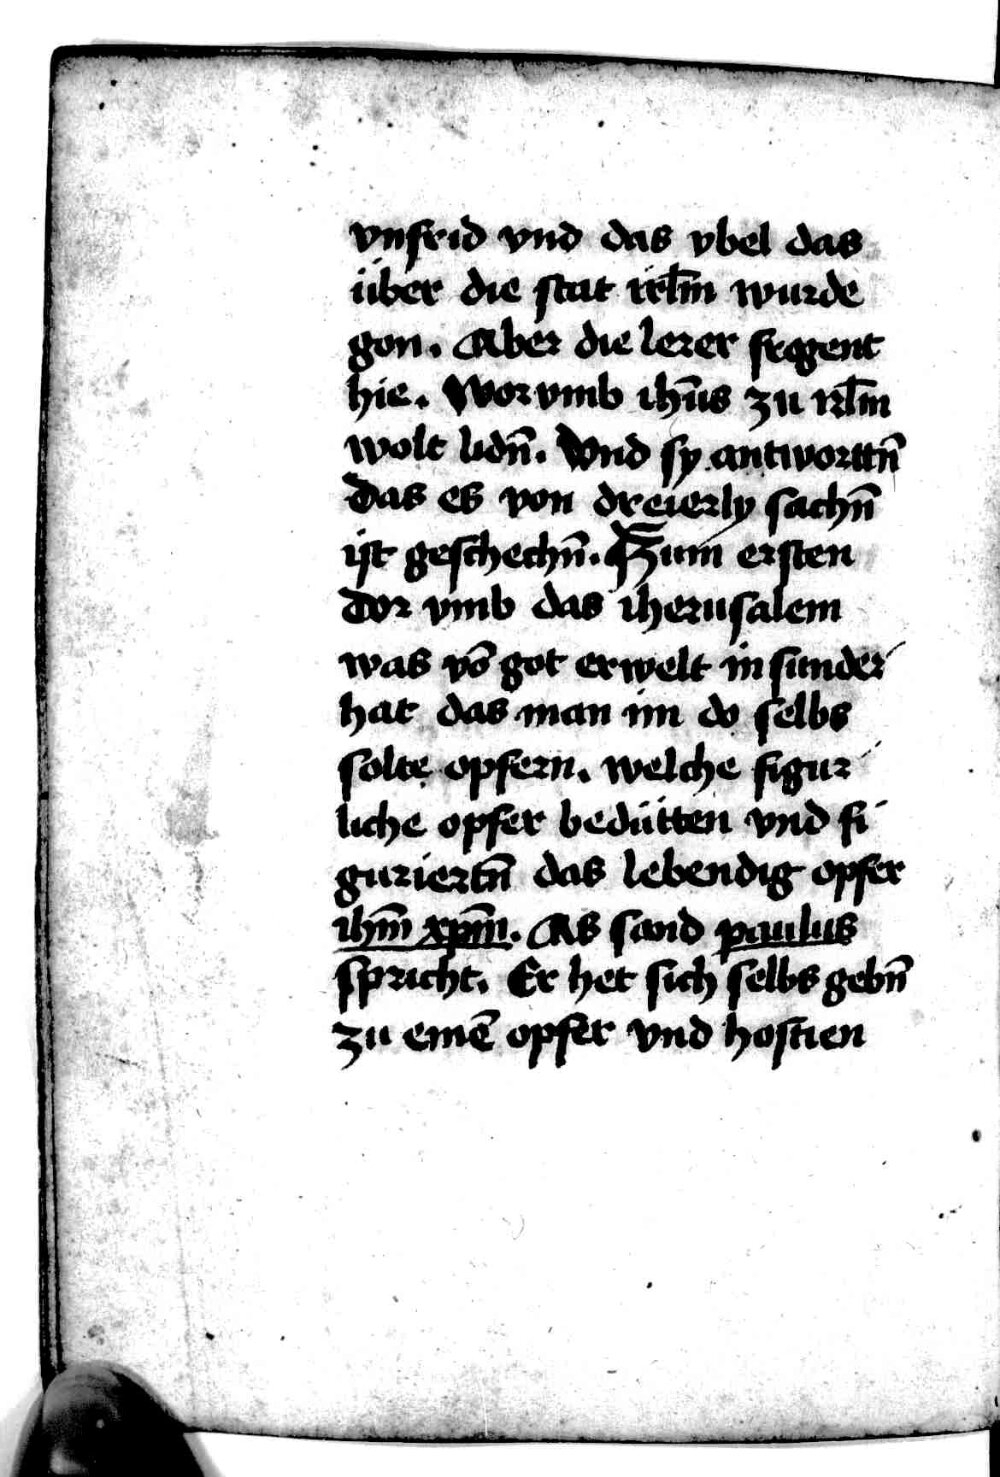 vnfrid vnd das vbel das
über die stat irl̄m wurde
gon. Aber die lerer fragent
hie. Wor vmb ih̄us zu irl̄m
wolt lidn̄. Vnd sy antworttn̄
das es von dreierly sachn̄
ist geschechn̄. Zum ersten
dor vmb das iherusalem
was vō got erwelt in sunder
hat das man im do selbs
solte opfern. welche figur
liche opfer bedütten vnd fi
guriertn̄ das lebendig opfer
ih̄m xp̄m. As sand paulus
spricht. Er het sich selbs gebn̄
zu einē opfer vnd hostien